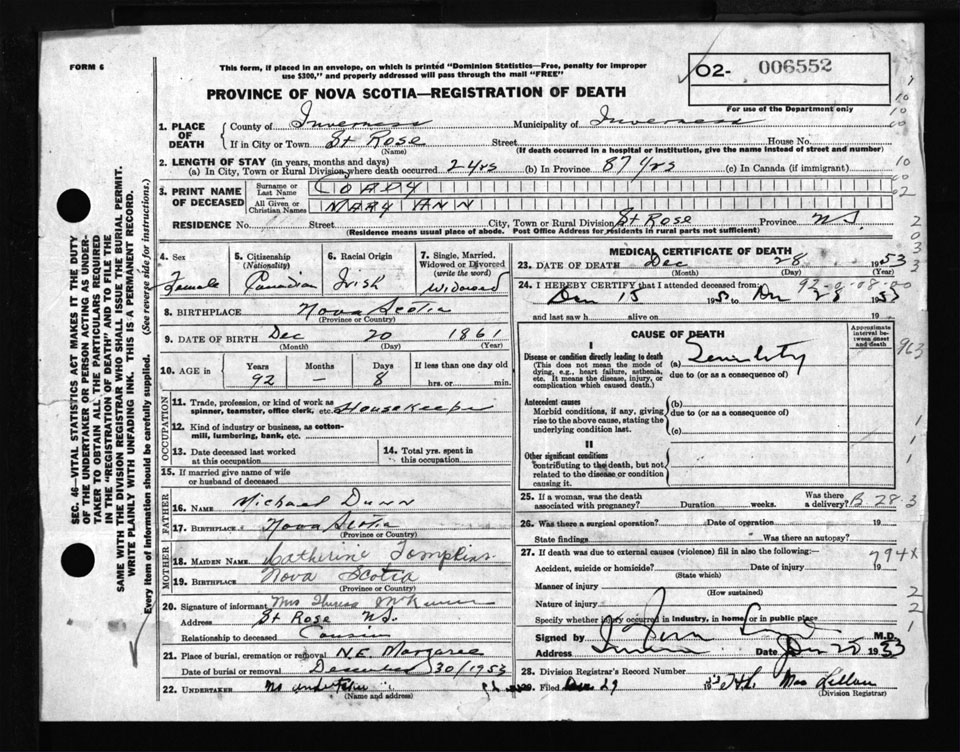 FORM 6
This form, if placed in an envelope, on which is printed "Dominion Statistics—Free, penalty for improper
use $300," and properly addressed will pass through the mail "FREE"
O2- 006552
For use of the Department only
PROVINCE OF NOVA SCOTIA—REGISTRATION OF DEATH
1. PLACE OF DEATH County of Inverness Municipality of Inverness
If in City or Town St Rose Street House No.
(Name) (If death occurred in a hospital or institution, give the name instead of street and number)
2. LENGTH OF STAY (in years, months and days)
(a) In City, Town or Rural Division where death occurred 2 yrs (b) In Province 87 yrs (c) In Canada (if immigrant)
3. PRINT NAME OF DECEASED Surname or Last Name COADY
All Given or Christian Names MARY ANN
RESIDENCE No. Street City, Town or Rural Division St Rose Province N.S.
(Residence means usual place of abode. Post Office Address for residents in rural parts not sufficient)
4. Sex Female
5. Citizenship (Nationality) Canadian
6. Racial Origin Irish
7. Single, Married, Widowed or Divorced (write the word) Widowed
8. BIRTHPLACE Nova Scotia
(Province or Country)
9. DATE OF BIRTH Dec 20 1861
(Month) (Day) (Year)
10. AGE in Years Months Days If less than one day old
92 — 8 hrs. or min.
OCCUPATION
11. Trade, profession, or kind of work as spinner, teamster, office clerk, etc. Housekeeper
12. Kind of industry or business, as cotton-mill, lumbering, bank, etc.
13. Date deceased last worked at this occupation
14. Total yrs. spent in this occupation
15. If married give name of wife or husband of deceased
FATHER
16. NAME Michael Dunn
17. BIRTHPLACE Nova Scotia
(Province or Country)
MOTHER
18. MAIDEN NAME Catherine Tompkins
19. BIRTHPLACE Nova Scotia
(Province or Country)
20. Signature of informant Mrs Theresa
Address St Rose N.S.
Relationship to deceased Cousin
21. Place of burial, cremation or removal N.E. Margaree
Date of burial or removal December 30/1953
22. UNDERTAKER No undertaker
(Name and address)
MEDICAL CERTIFICATE OF DEATH
23. DATE OF DEATH Dec 28 1953
(Month) (Day) (Year)
24. I HEREBY CERTIFY that I attended deceased from:
92-0-08-00
Dec 15 1953 Dec 28 1953
and last saw h alive on 19
CAUSE OF DEATH
Approximate interval between onset and death
I
Disease or condition directly leading to death
(This does not mean the mode of dying, e.g., heart failure, asthenia, etc. It means the disease, injury, or complication which caused death.)
(a) Senility
due to (or as a consequence of)
Antecedent causes
Morbid conditions, if any, giving rise to the above cause, stating the underlying condition last.
(b)
due to (or as a consequence of)
(c)
II
Other significant conditions
contributing to the death, but not related to the disease or condition causing it.
25. If a woman, was the death associated with pregnancy? Duration weeks. Was there a delivery? B 28.3
26. Was there a surgical operation? Date of operation 19
State findings Was there an autopsy?
27. If death was due to external causes (violence) fill in also the following:
794X
Accident, suicide or homicide? Date of injury 19
(State which)
Manner of injury
(How sustained)
Nature of injury
Specify whether injury occurred in industry, in home, or in public place
Signed by M.D.
Address Date 1953
28. Division Registrar's Record Number
29. Filed Dec 29 19
(Division Registrar)
SEC. 46—VITAL STATISTICS ACT MAKES IT THE DUTY
OF THE UNDERTAKER OR PERSON ACTING AS UNDER-
TAKER TO OBTAIN ALL THE PARTICULARS REQUIRED
IN THE "REGISTRATION OF DEATH" AND TO FILE THE
SAME WITH THE DIVISION REGISTRAR WHO SHALL ISSUE THE BURIAL PERMIT.
WRITE PLAINLY WITH UNFADING INK. THIS IS A PERMANENT RECORD.
Every item of information should be carefully supplied. (See reverse side for instructions.)